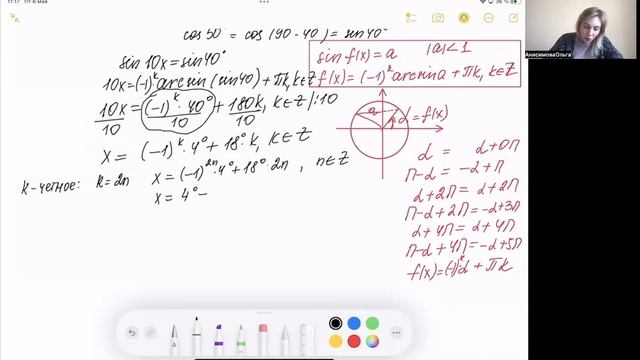 11:17 ПТ 6 мая
36 %
АнисимоваОльга
cos 50° = cos (90 - 40°) = sin 40°
sin 10x = sin 40°
10x = (-1)^k arcsin (sin 40) + πk, k∈Z
10x/10 = (-1)^k · 40°/10 + 180k/10, k∈Z /:10
x = (-1)^k · 4° + 18° · k, k∈Z
k-четное: k = 2n x = (-1)^2n · 4° + 18° · 2n, n∈Z
x = 4° -
sin f(x) = a |a| < 1
f(x) = (-1)^k arcsin a + πk, k∈Z
a
d = f(x)
d = d + 0π
π - d = -d + π
d + 2π = d + 2π
π - d + 2π = -d + 3π
d + 4π = d + 4π
π - d + 4π = -d + 5π
f(x) = (-1)^k d + πk